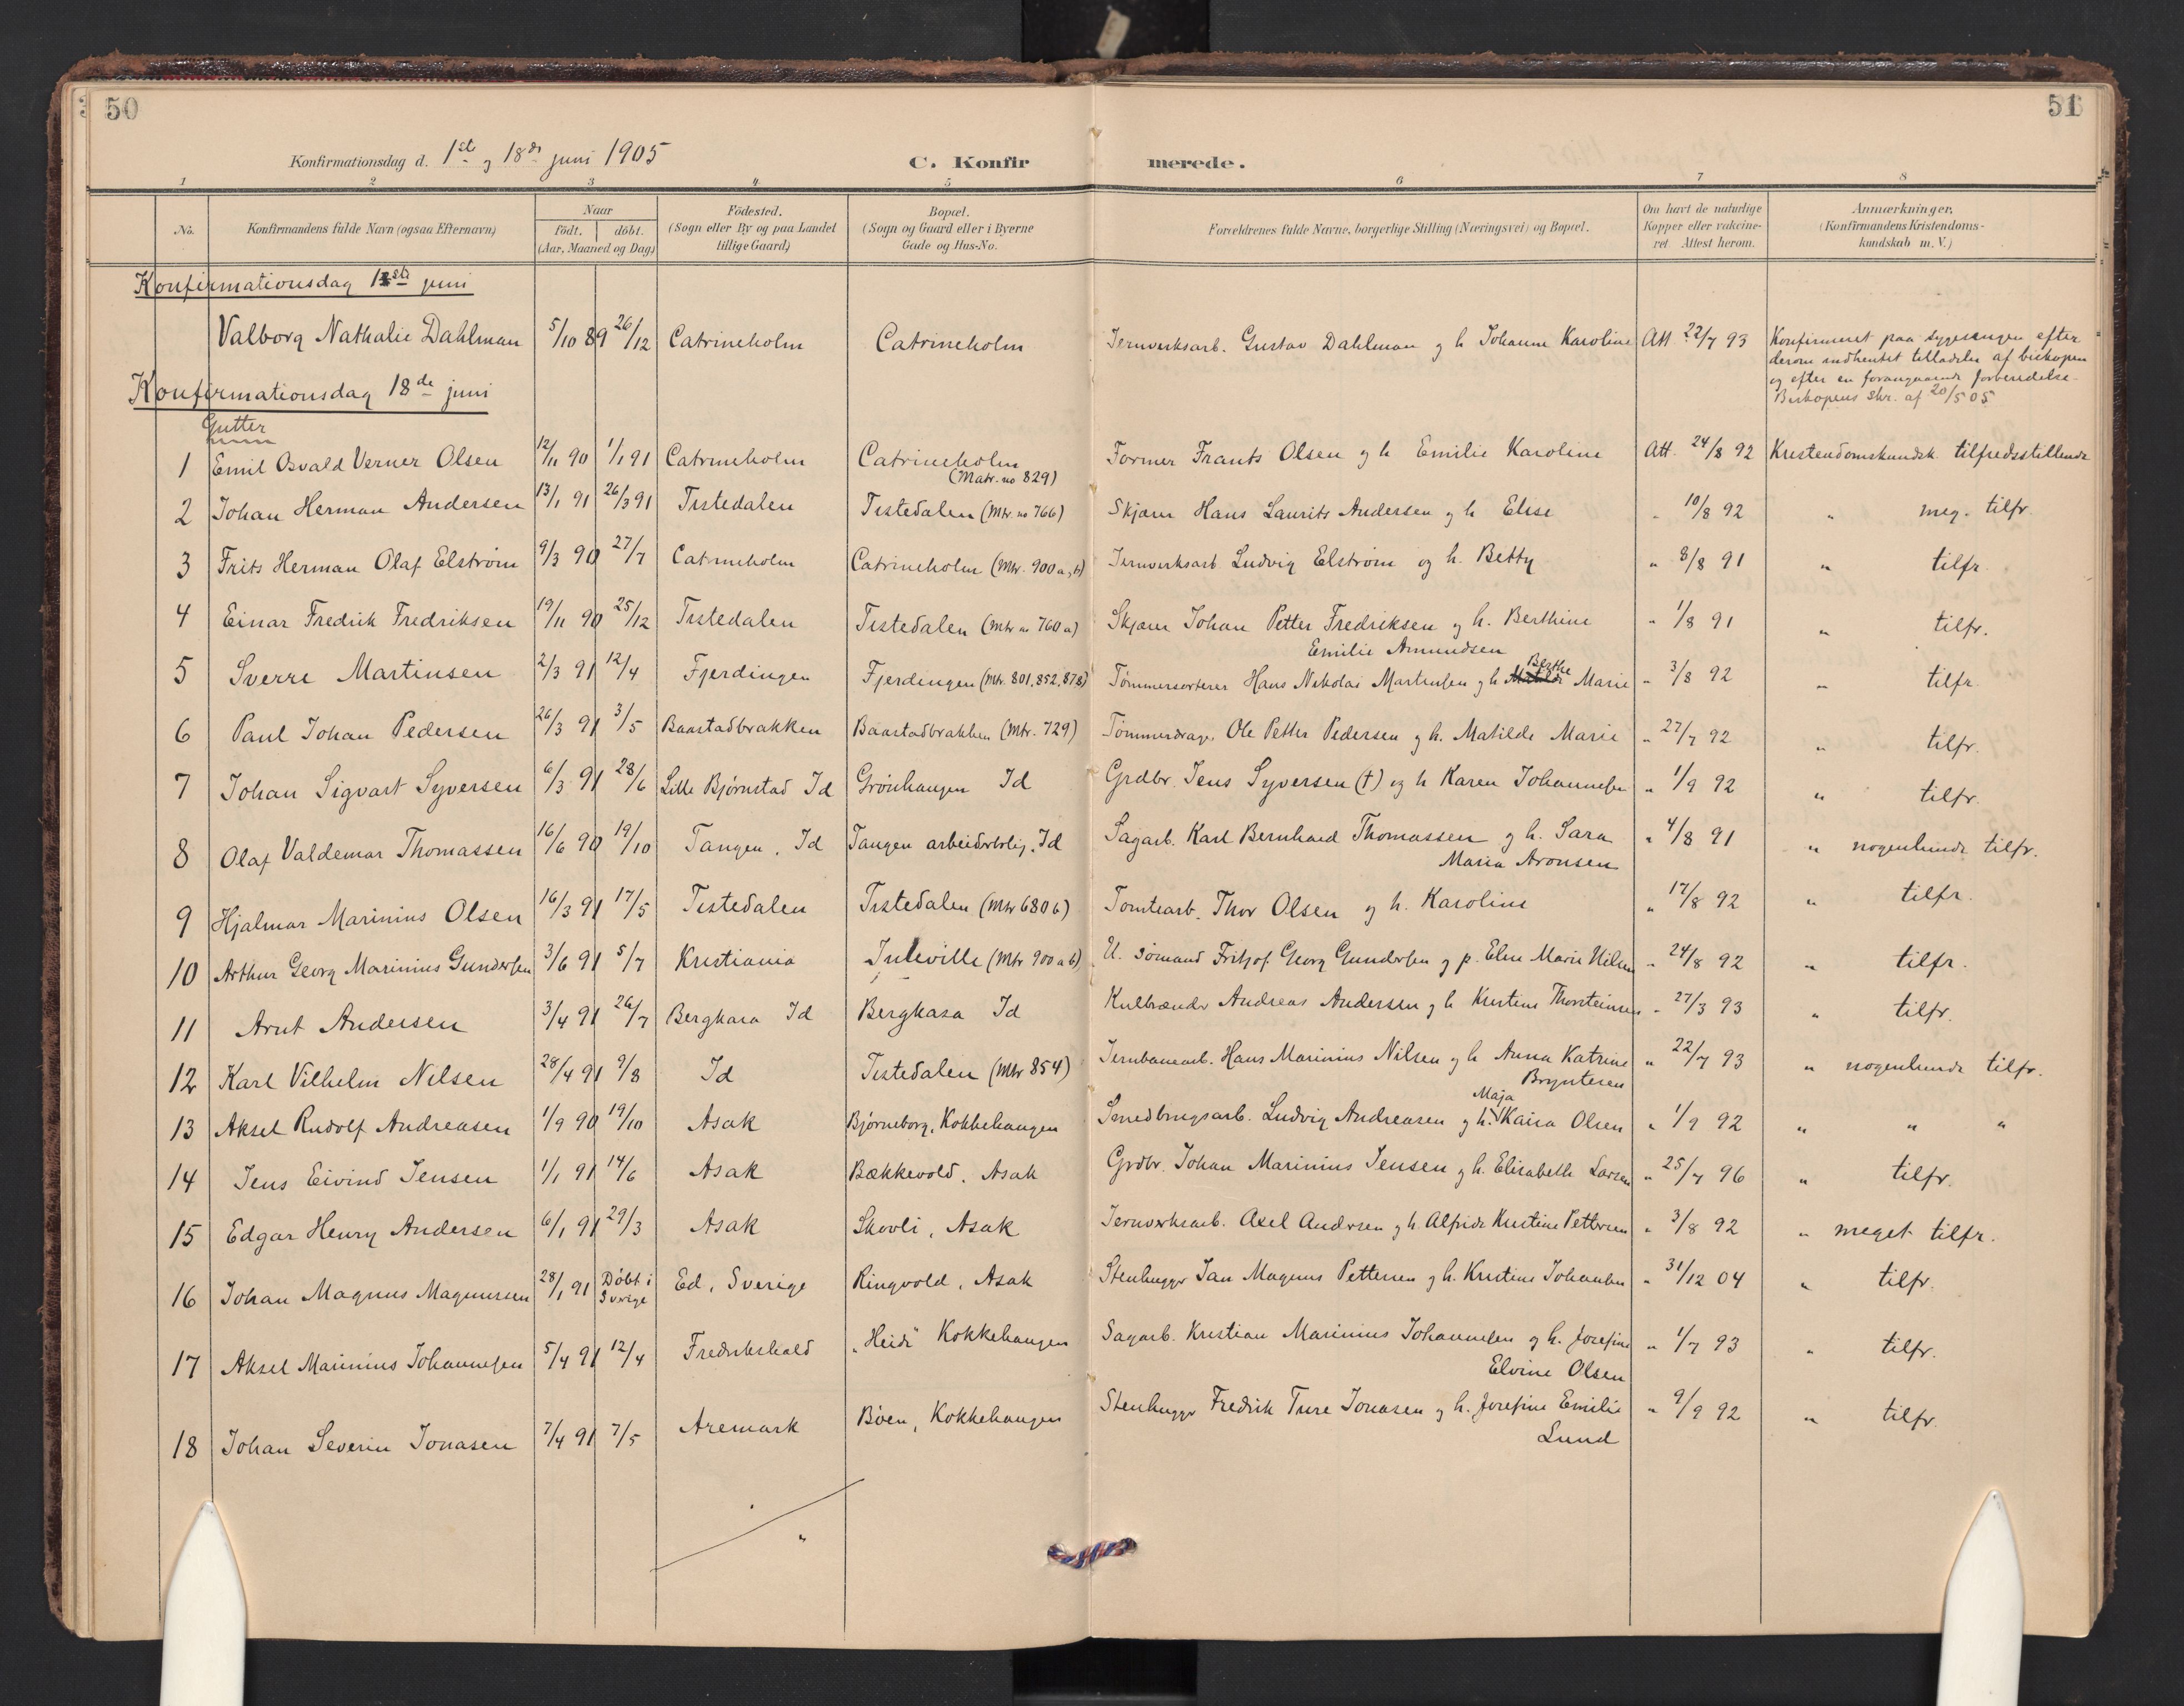 50
51
Konfirmationsdag d. 1ste og 18de juni 1905
C. Konfirmerede.
1 2 3 4 5 6 7 8
No.
Konfirmandens fulde Navn (ogsaa Efternavn)
Naar
født. | døbt.
(Aar, Maaned og Dag)
Fødested.
(Sogn eller By og paa Landet
tillige Gaard)
Bopæl.
(Sogn og Gaard eller i Byerne
Gade og Hus-No.
Forældrenes fulde Navne, borgerlige Stilling (Næringsvei) og Bopæl.
Om havt de naturlige
Kopper eller vakcine-
ret Attest herom.
Anmærkninger,
(Konfirmandens Kristendoms-
kundskab m. V.)
Konfirmationsdag 1ste juni
Valborg Nathalie Dahlman 5/10 89 26/12 Catrineholm Catrineholm Jernverksarb. Gustav Dahlman og h Johanne Karoline Att 22/7 93 Konfirmeret paa sygesengen efter
derom indhentet tilladelse af biskopen
og efter en forangaaende forberedelse.
Biskopens skr. af 20/5 05
Konfirmationsdag 18de juni
Gutter
1 Emil Osvald Verner Olsen 12/11 90 1/1 91 Catrineholm Catrineholm Former Frants Olsen og h Emilie Karoline Att. 24/8 92 Kristendomskundsk. tilfredsstillende
(Matr. no 829)
2 Johan Herman Andersen 13/1 91 26/3 91 Tistedalen Tistedalen (Mtr. no 766) Skjærer Hans Laurits Andersen og h Elise " 10/8 92 " meg. tilfr.
3 Frits Herman Olaf Elstrøm 9/3 90 27/7 Catrineholm Catrineholm (Mtr. 900 a, b) Jernverksarb. Ludvig Elstrøm og h. Betty " 8/8 91 " tilfr.
4 Einar Fredrik Fredriksen 19/11 90 25/12 Tistedalen Tistedalen (Mtr no 760 a) Skjærer Johan Petter Fredriksen og h. Berthine " 1/8 91 " tilfr.
Emilie Amundsen
5 Sverre Martinsen 2/3 91 12/4 Fjerdingen Fjerdingen (Mtr. 801, 852, 878) Tømmersorterer Hans Nikolai Martinsen og h Berthe Marie " 3/8 92 " tilfr.
6 Paul Johan Pedersen 26/3 91 3/5 Baastadbrakken Baastadbrakken (Mtr. 729) Tømmerdrager. Ole Petter Pedersen og h. Matilde Marie " 27/7 92 " tilfr.
7 Johan Sigvart Syversen 6/3 91 28/6 Lille Bjørnstad Id Grønhaugen Id Grdbr. Jens Syversen (†) og h Karen Johannesen " 1/9 92 " tilfr.
8 Olaf Valdemar Thomassen 16/6 90 19/10 Tangen, Id Tangen arbeiderbolig, Id Sagarb. Karl Bernhard Thomassen og h. Sara " 4/8 91 " nogenlunde tilfr.
Maria Aronsen
9 Hjalmar Marinius Olsen 16/3 91 17/5 Tistedalen Tistedalen (Mtr 680 b) Tomtearb. Thor Olsen og h. Karoline " 17/8 92 " tilfr.
10 Arthur Georg Marinius Gundersen 3/6 91 5/7 Kristiania (Mtr 900 a b) U. sømand Fritjof Georg Gundersen og p. Elen Marie Nilsen " 24/8 92 " tilfr.
11 Arnt Andersen 3/4 91 26/7 Bergkasa Id Bergkasa Id Kulbrænder Andreas Andersen og h Kristine Thorsteinsen " 27/3 93 " tilfr.
12 Karl Vilhelm Nilsen 28/4 91 9/8 Id Tistedalen (Mtr 854) Jernbanearb. Hans Marinius Nilsen og h Anna Katrine " 22/7 93 " nogenlunde tilfr.
Bryntesen
13 Aksel Rudolf Andreasen 1/9 90 19/10 Asak Bjørneborg, Kokkehaugen Smedbrugsarb. Ludvig Andreasen og h. Maja Kaisa Olsen " 1/9 92 " " "
14 Jens Eivind Jensen 1/1 91 14/6 Asak Bækkevold, Asak Grdbr. Johan Marinius Jensen og h. Elisabeth Larsen " 25/7 96 " tilfr.
15 Edgar Henry Andersen 6/1 91 29/3 Asak Skovli, Asak Jernverksarb. Axel Andersen og h. Alfride Kristine Pettersen " 3/8 92 " meget tilfr.
16 Johan Magnus Magnussen 28/1 91 Døbt i Sverige Ed, Sverige Ringvold, Asak Stenhugger Jan Magnus Pettersen og h. Kristine Johansen " 31/12 04 " tilfr.
17 Aksel Marinius Johannesen 5/4 91 12/4 Fredrikshald "Heidi" Kokkehaugen Sagarb. Kristian Marinius Johannesen og h. Josefine " 1/7 93 " tilfr.
Elvine Olsen
18 Johan Severin Jonasen 7/4 91 7/5 Aremark Bøen, Kokkehaugen Stenhugger Fredrik Ture Jonasen og h. Josefine Emilie " 9/9 92 " tilfr.
Lund